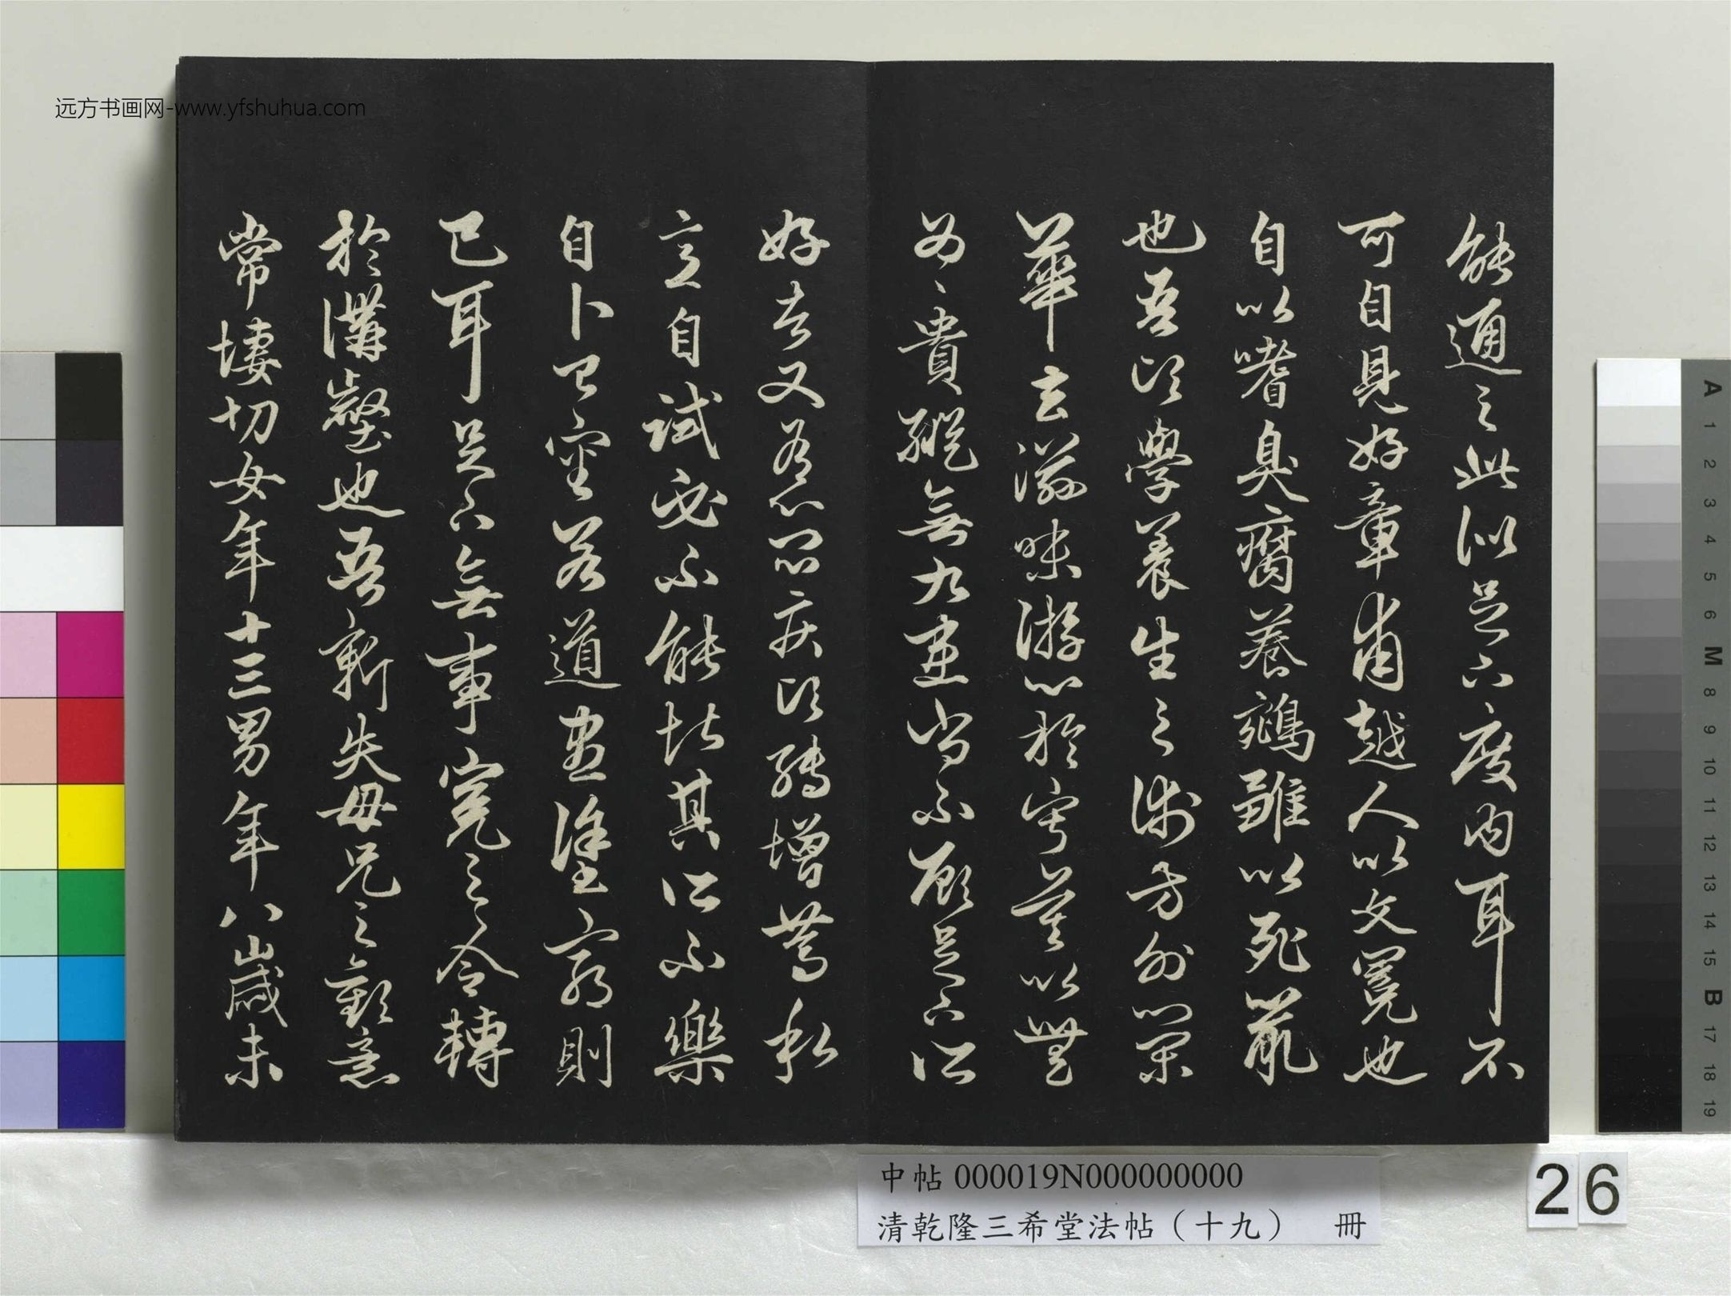 能通之此似足下度內耳不
可自見好章甫越人以文冕也
自以嗜臭腐養鵷雛以死鼠
也吾頃學養生之術方外榮
華去滋味游心於寂寞以無
為〻貴縱無九患尚不顧足下所
好者又有心悶疾頃轉增篤私
意自試必不能堪其所不樂
自卜已審若道盡塗窮則
已耳足下無事冤之令轉
於溝壑也吾新失母兄之歡意
常悽切女年十三男年八歲未
远方书画网-www.yfshuhua.com
中帖 000019N000000000
清乾隆三希堂法帖（十九） 冊
26
A
1
2
3
4
5
6
M
8
9
10
11
12
13
14
15
B
17
18
19